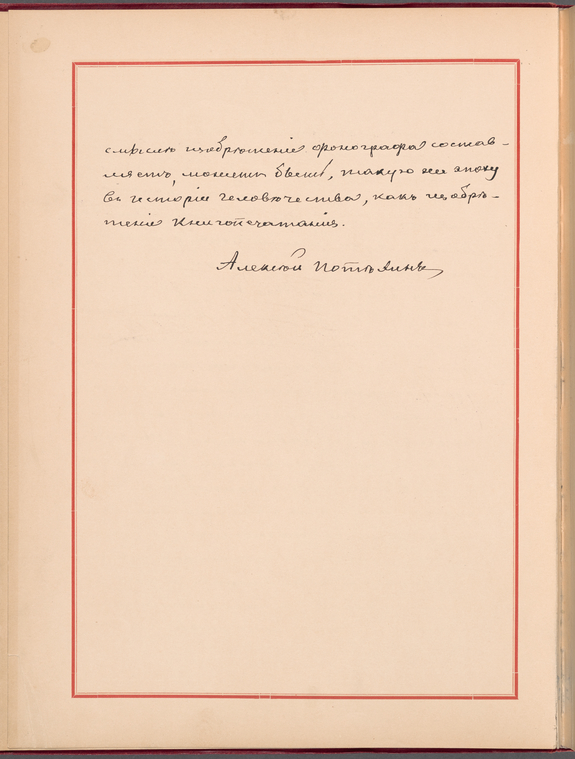 смыслѣ изобрѣтеніе фонографа состав-
ляетъ, можетъ быть, такую же эпоху
въ исторіи человѣчества, какъ изобрѣ-
теніе книгопечатанія.
Алексѣй Потѣхинъ